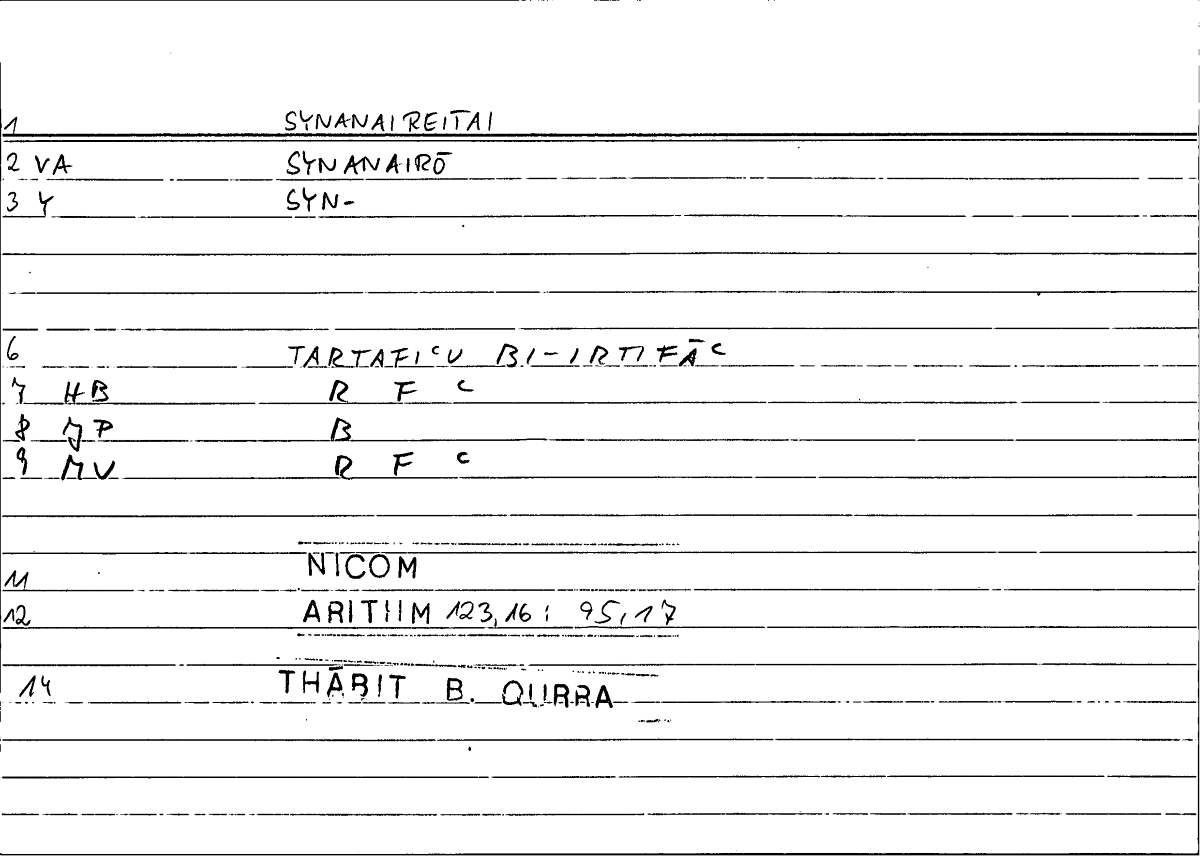 1 SYNANAIREITAI
2 VA SYNANAIRŌ
3 Y SYN-
6 TARTAFIᶜU BI-IRTIFĀᶜ
7 HB R F ᶜ
8 JP B
9 MV R F ᶜ
11 NICOM
12 ARITHM 123,16 : 95,17
14 THĀBIT B. QURRA